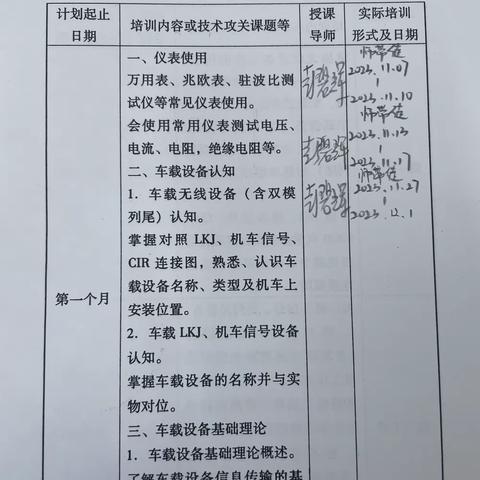 计划起止
日期
培训内容或技术攻关课题等
授课
导师
实际培训
形式及日期
第一个月
一、仪表使用
万用表、兆欧表、驻波比测
试仪等常见仪表使用。
会使用常用仪表测试电压、
电流、电阻，绝缘电阻等。
二、车载设备认知
1．车载无线设备（含双模
列尾）认知。
掌握对照 LKJ、机车信号、
CIR 连接图，熟悉、认识车
载设备名称、类型及机车上
安装位置。
2．车载 LKJ、机车信号设备
认知。
掌握车载设备的名称并与实
物对位。
三、车载设备基础理论
1．车载设备基础理论概述。
了解车载设备信息传输的基
师带徒
2023.11.07
2023.11.10
师带徒
2023.11.13
2023.11.17
师带徒
2023.11.27
2023.12.1